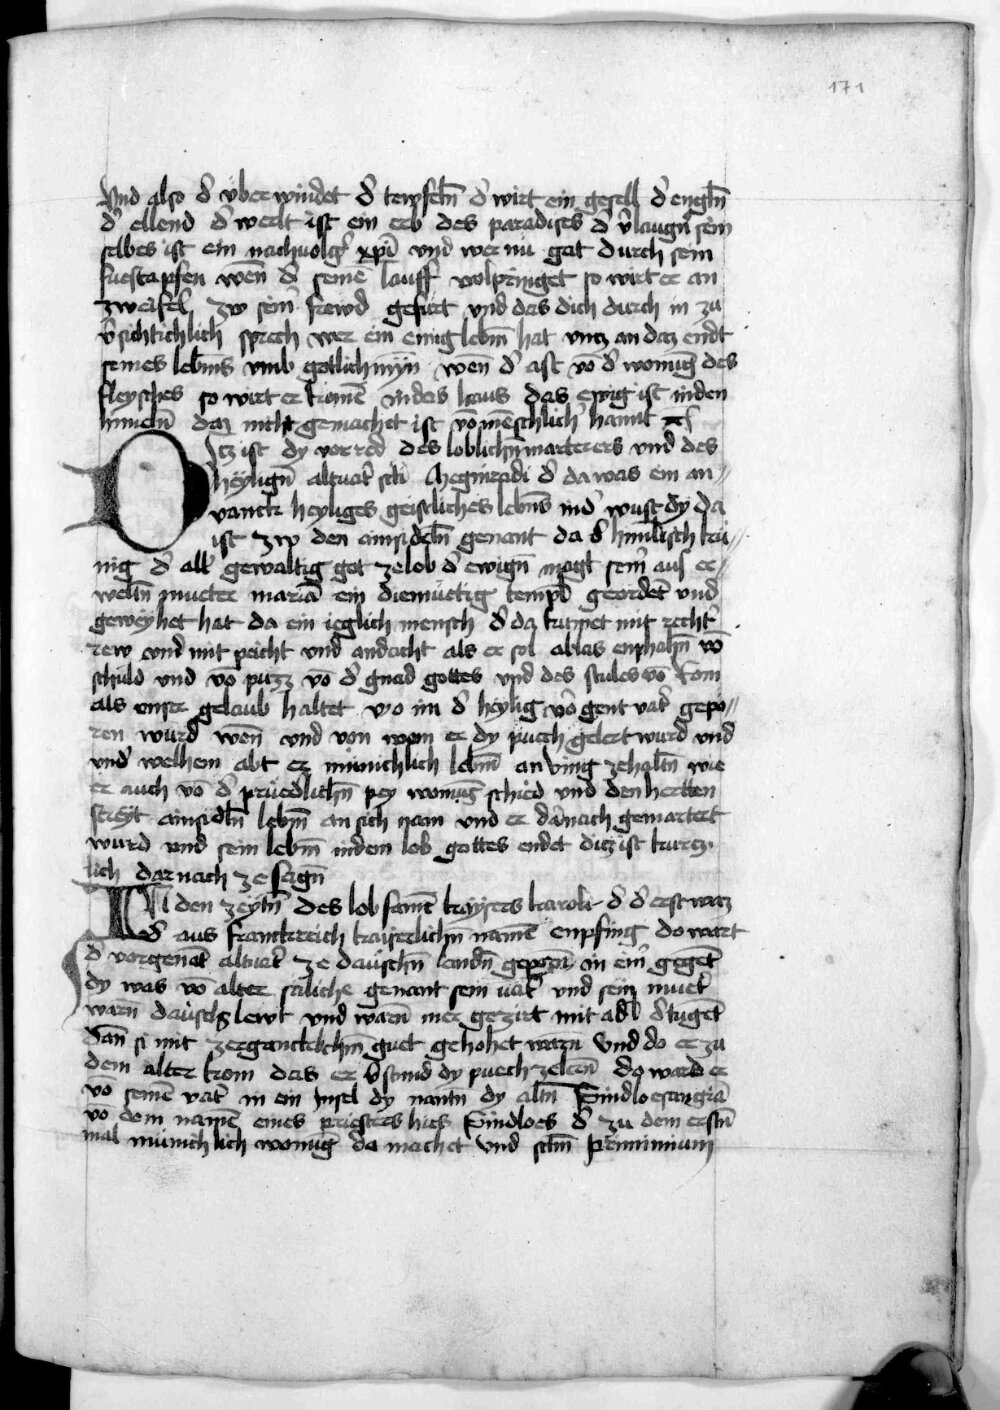 171
Und also d' vber windet d' tewfeln̄ d' wirt ein gesell d' engln̄
d' ellend d' werlt ist ein erb des paradises d' v'laugn̄ sein
selbes ist ein nachuolg' xpī vnd wer nu gat durch sein
fuestapfen wen̄ d' seinē lauff volpringet so wirt er an
zweifel zw sein' frewd gefurt vnd das dich durch in zu
v'sichtichlich sprech wer ein einig lebm̄ hat vntz an daz endt
seines lebm̄s vmb gotlich myn̄ wen̄ d' ast vō d' wonūg des
fleysches so wirt er komē in das haus das ewig ist in den
himeln̄ daz nicht gemachet ist vō menschlich' hannt
Ditz ist dy vorred des loblichn̄ martrers vnd des
heylign̄ altuat' scti Meginradi d' da was ein an//
vanck heyliges geistliches lebm̄s in d' wust dy da
ist zw den ainsideln̄ genant da d' himlisch kü//
nig d' all' gewaltig got ze lob d' ewign̄ magt sein' aus er//
weltn̄ mueter mariā ein diemuetig tempel geordēt vnd
geweyhet hat da ein ieglich mensch d' da kumet mit recht'
rew vnd mit peicht vnd andacht als er sol ablas enphahn̄ vō
schuld vnd vō puzz vō d' gnad gottes vnd des stules vō Rom
als vnser gelaub haltet wo nu d' heylig vor gent vat' gepo//
ren wurd wen̄ vnd von wem er dy puech gelert wurd vnd
vnd' welhem abt er münichlich lebm̄ an ving ze haltn̄ wie
er auch vō d' prüedlichn̄ pey wonūg schied vnd den hertten
streyt ainsideln̄ lebm̄ an sich nam vnd er dar nach gemartert
wurd vnd sein lebm̄ in dem lob gottes endet ditz ist kurtz
lich dar nach ze sagn̄
In den zeytn̄ des lob samē kaysers karoli d' d' erst waz
d' aus franckreich kayserlichn̄ namē enpfing do wart
d' vorgenāt altuat' ze dauschn̄ landn̄ geporn̄ in ein' gegēt
dy was vō alter suliche genant sein uat' vnd sein muet'
warn̄ dausch lewt vnd warn̄ mer gezirt mit adel d' tugēt
dan̄ si mit zergancklichm̄ guet gehohet warn̄ Vnd do er zu
dem alter kom das er v'stund dy puech ze lern̄ do ward er
vō seinē vat' in ein Insel dy nantn̄ dy altn̄ Sindloesaugiā
vō dem namē eines priesters hies Sindloes d' zu dem erstn̄
mal münichlich wonūg da machet vnd sctm̄ Pirminium